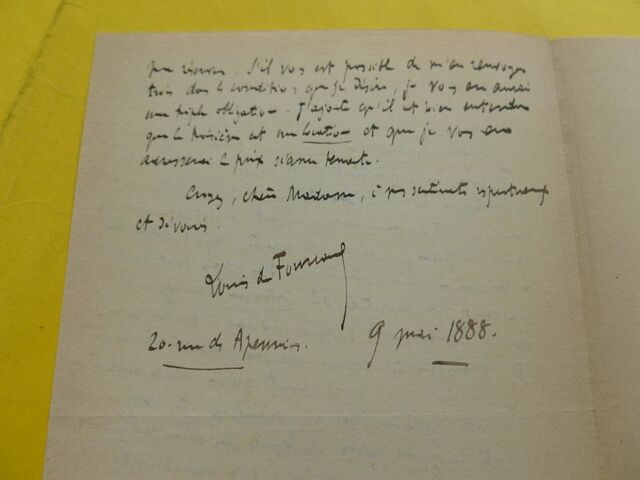 S'il vous est possible de m'en renvoyer
trois dans les conditions que je désire, je vous en aurai
une triple obligation. J'ajoute qu'il est bien entendu
que la troisième est en location et que je vous en
adresserai le prix séance tenante.
Croyez, chère Madame, à mes sentiments respectueux
et dévoués.
Louis de Fourcaud
20. rue des Apennins. 9 mai 1888.